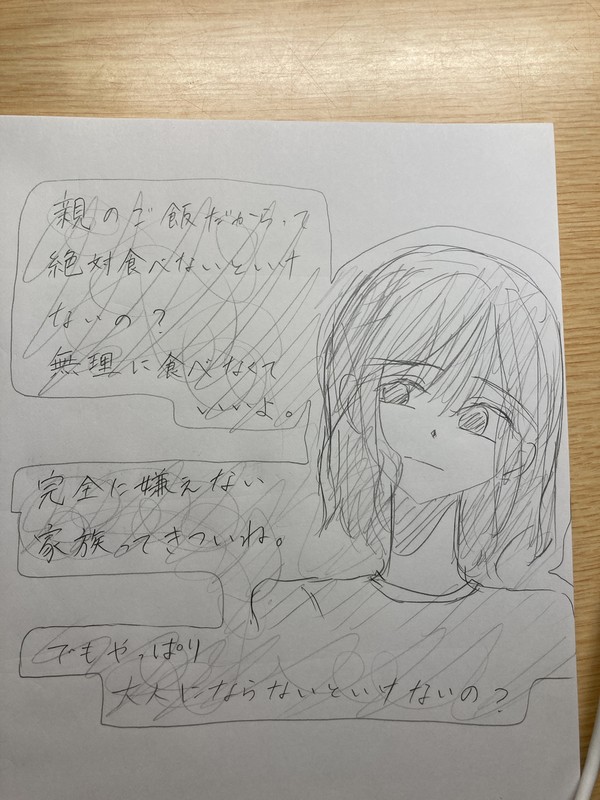 親のご飯だからって
絶対食べないといけ
ないの？
無理に食べなくて
いいよ。
完全に嫌えない
家族ってきついね。
でもやっぱり
大人にならないといけないの？